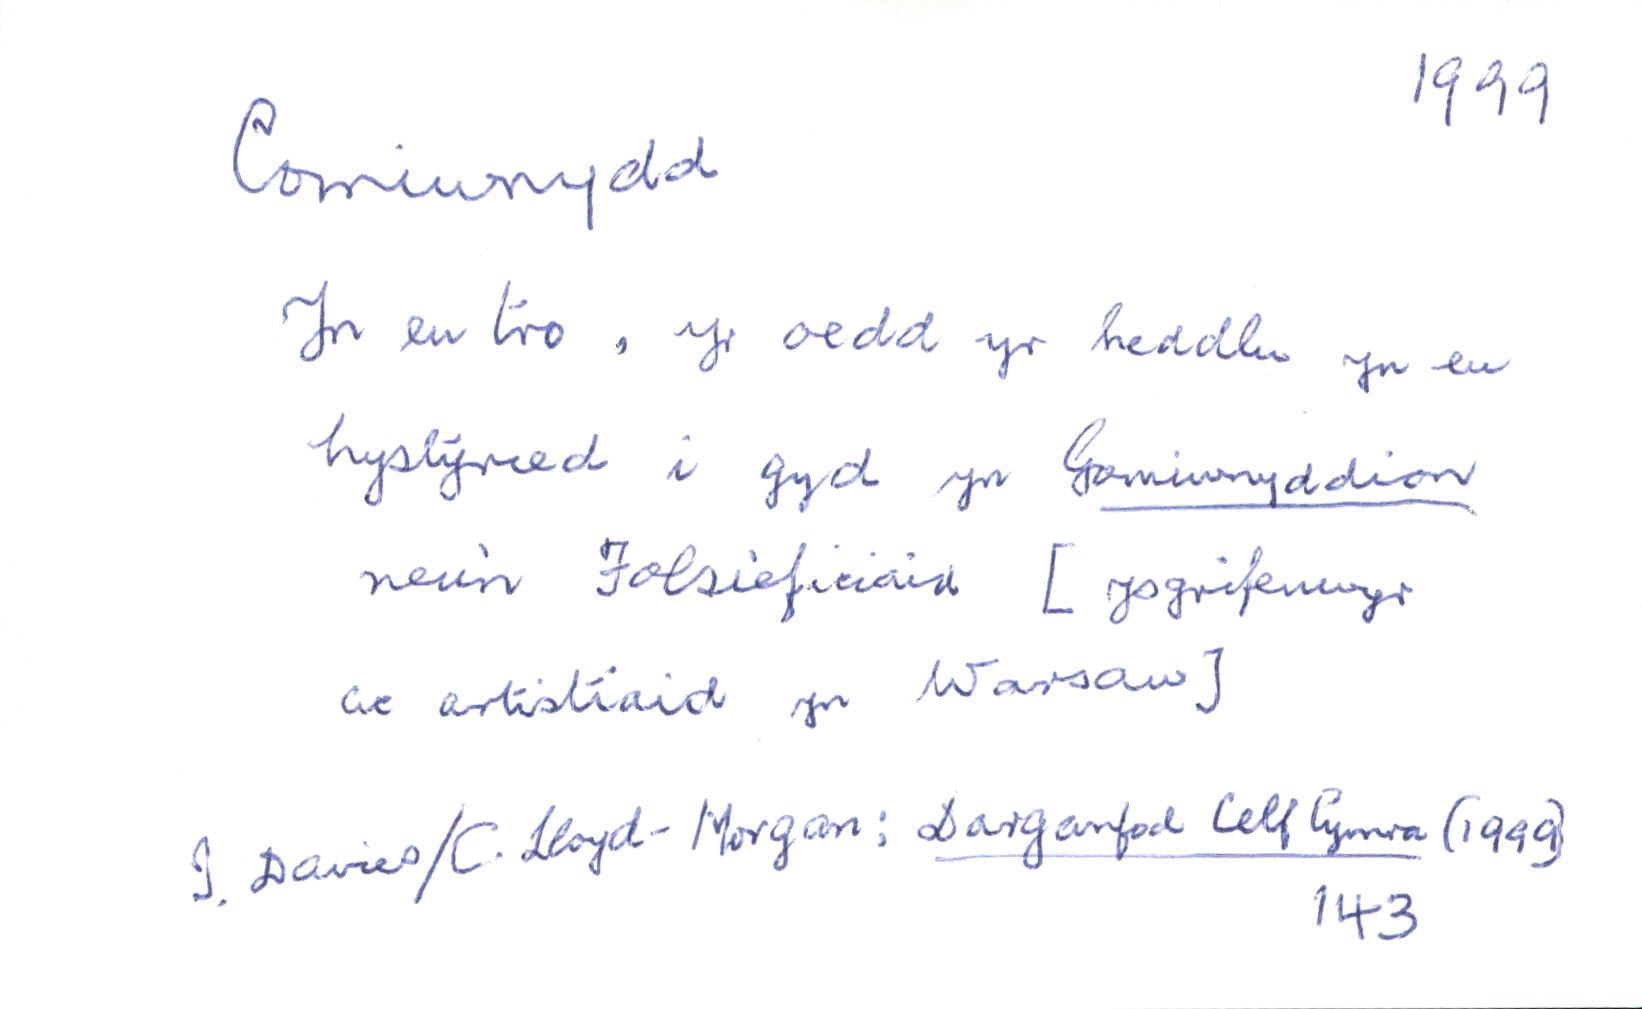 1999
Comiwnydd
Yn eu tro, yr oedd yr heddlu yn eu
hystyried i gyd yn Gomiwnyddion
neu'n Folsieficiaid [ysgrifenwyr
ac artistiaid yn Warsaw]
I. Davies/C. Lloyd-Morgan: Darganfod Celf Cymru (1999)
143